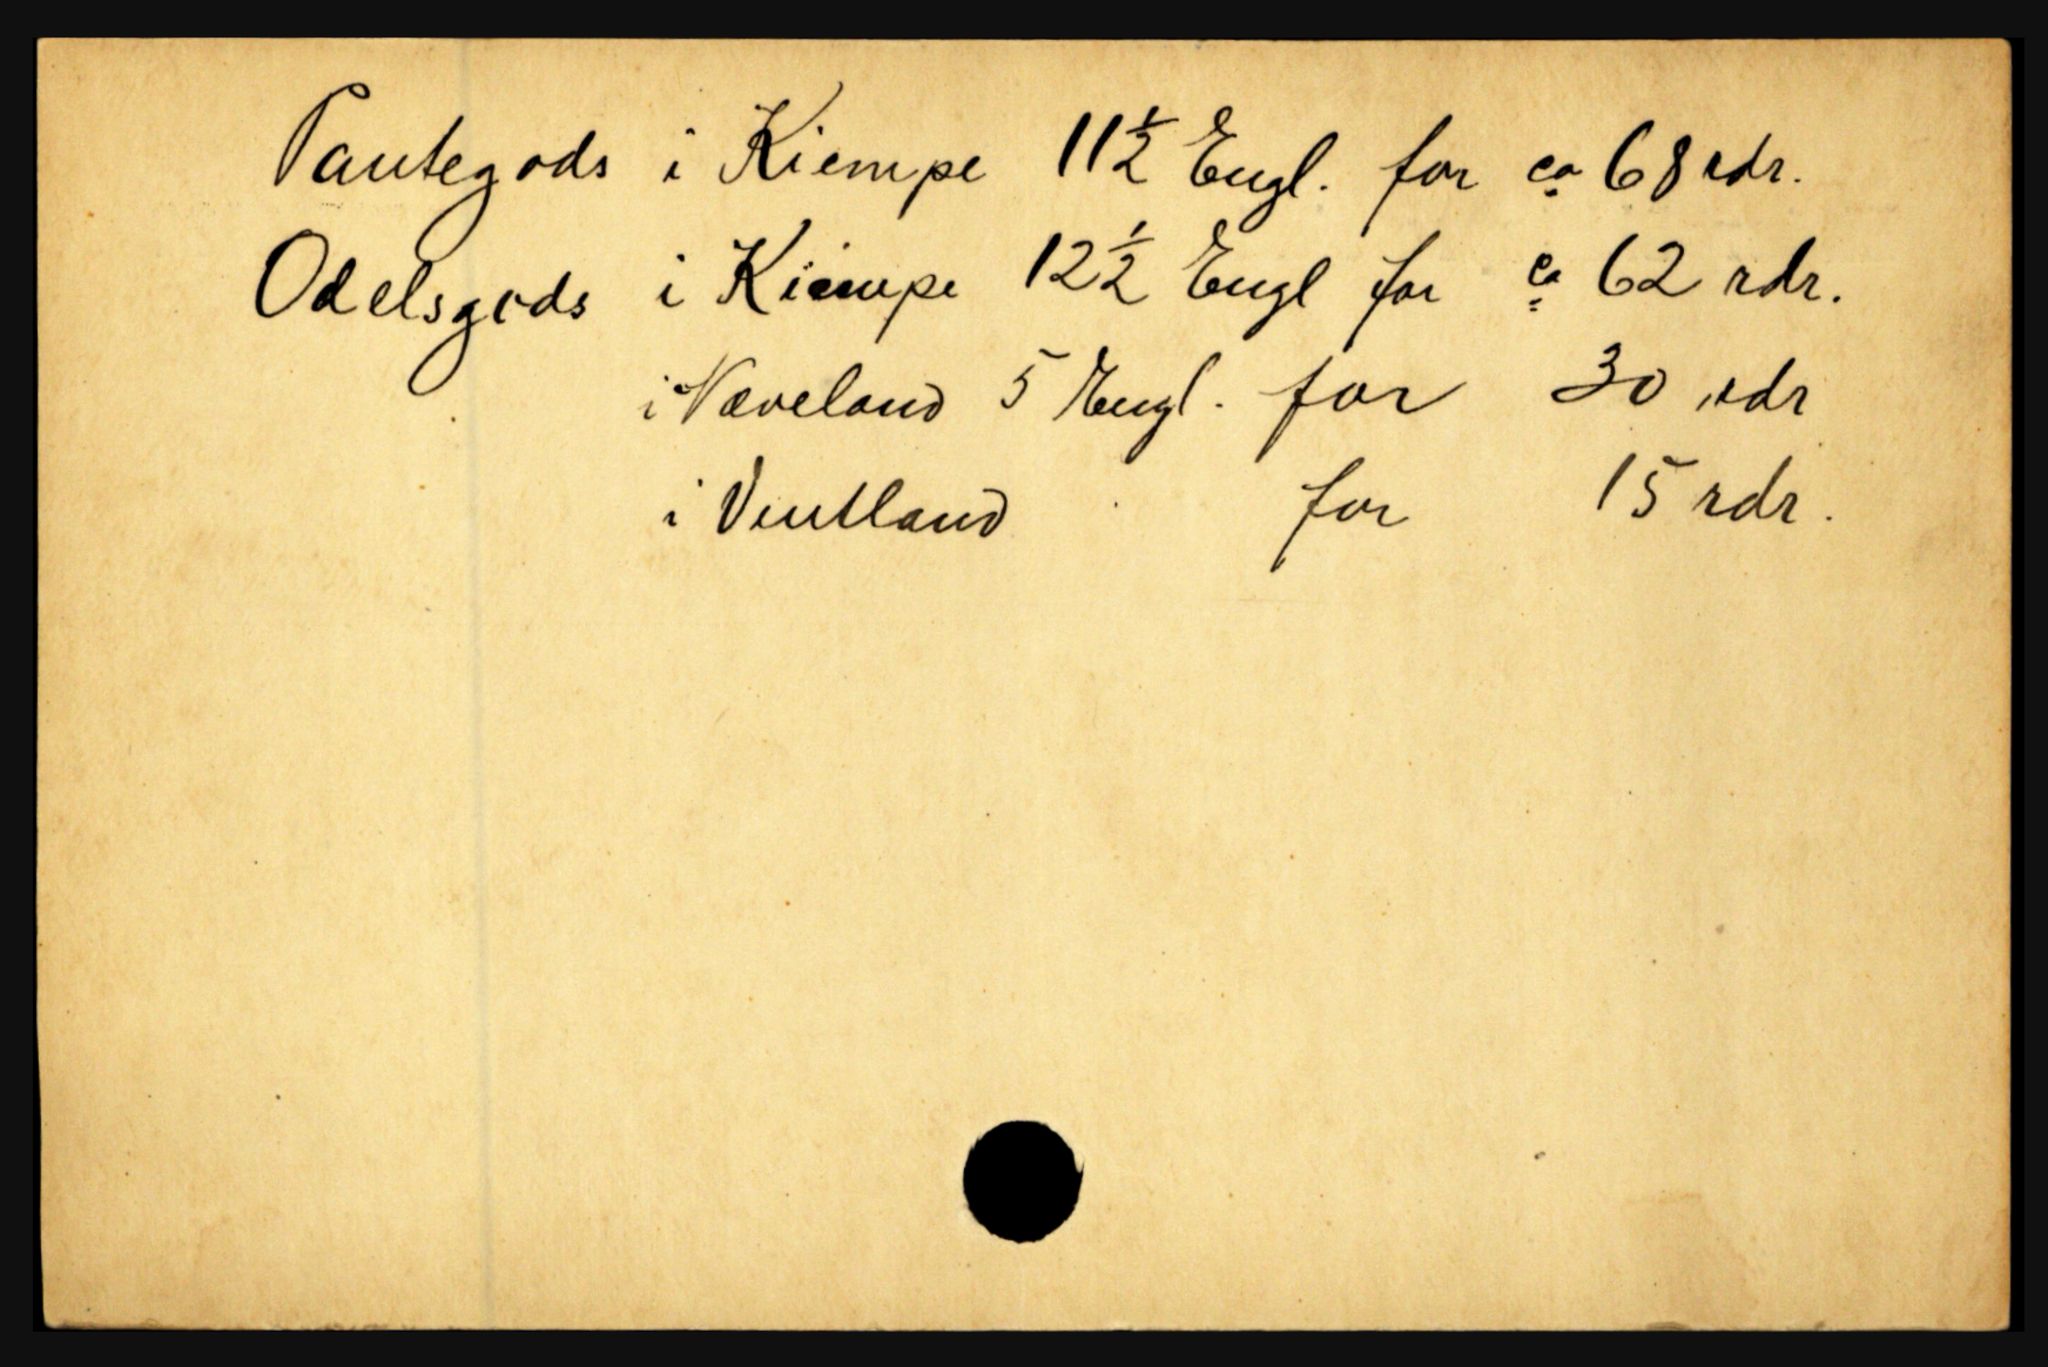 Pantegods i Kiempe 11½ Engl. for ca 68 rdr.
Odelsgods i Kiempe 12½ Engl for ca 62 rdr.
i Næveland 5 Engl. for 30 rdr
i Ventland for 15 rdr.